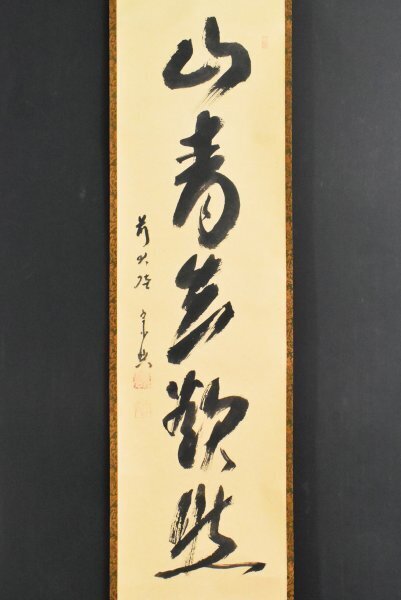 山青花欲然
前大徳
宗典